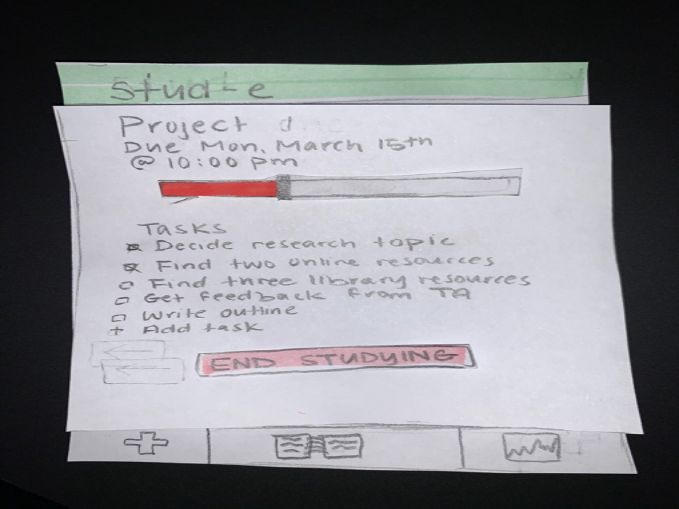 Stud-E
Project
Due Mon. March 15th
@ 10:00 pm
Tasks
Decide research topic
Find two online resources
Find three library resources
Get feedback from TA
Write outline
+ Add task
END STUDYING